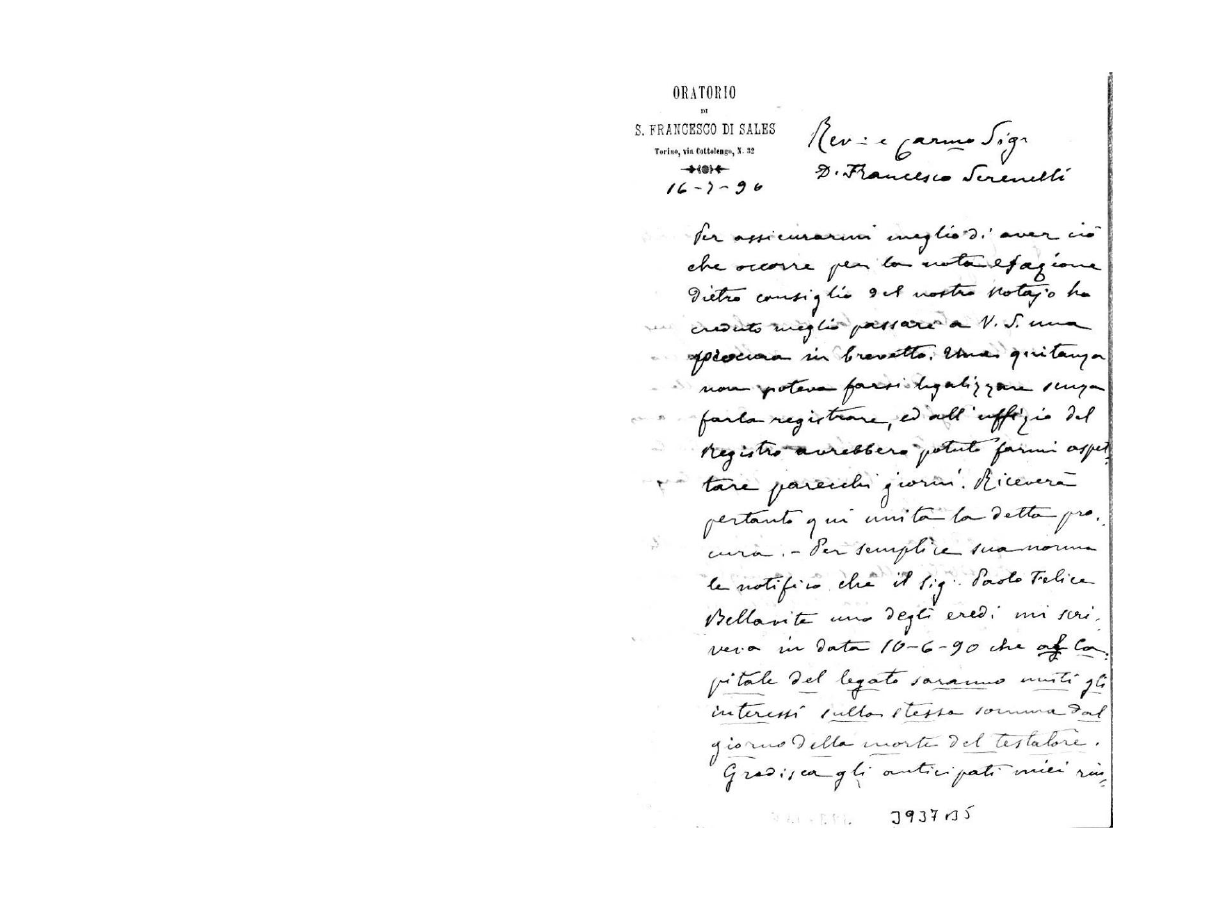 ORATORIO
DI
S. FRANCESCO DI SALES
Torino, via Cottolengo, N. 32
16-7-90
Rev. e Carmo Sigr
D. Francesco Serenelli
Per assicurarmi meglio di aver ciò
che occorre per la nota esazione
dietro consiglio del nostro Notajo ho
creduto meglio passare a V. S. una
procura in brevetto. Una quitanza
non poteva farsi legalizzare senza
farla registrare, ed all'uffizio del
Registro avrebbero potuto farmi aspet-
tare parecchi giorni. Riceverà
pertanto qui unita la detta pro-
cura. - Per semplice sua norma
le notifico che il sig. Paolo Felice
Bellavite uno degli eredi mi scri-
veva in data 10-6-90 che al Ca-
pitale del legato saranno uniti gli
interessi sulla stessa somma dal
giorno della morte del testatore.
Gradisca gli anticipati miei rin-
3937 B5